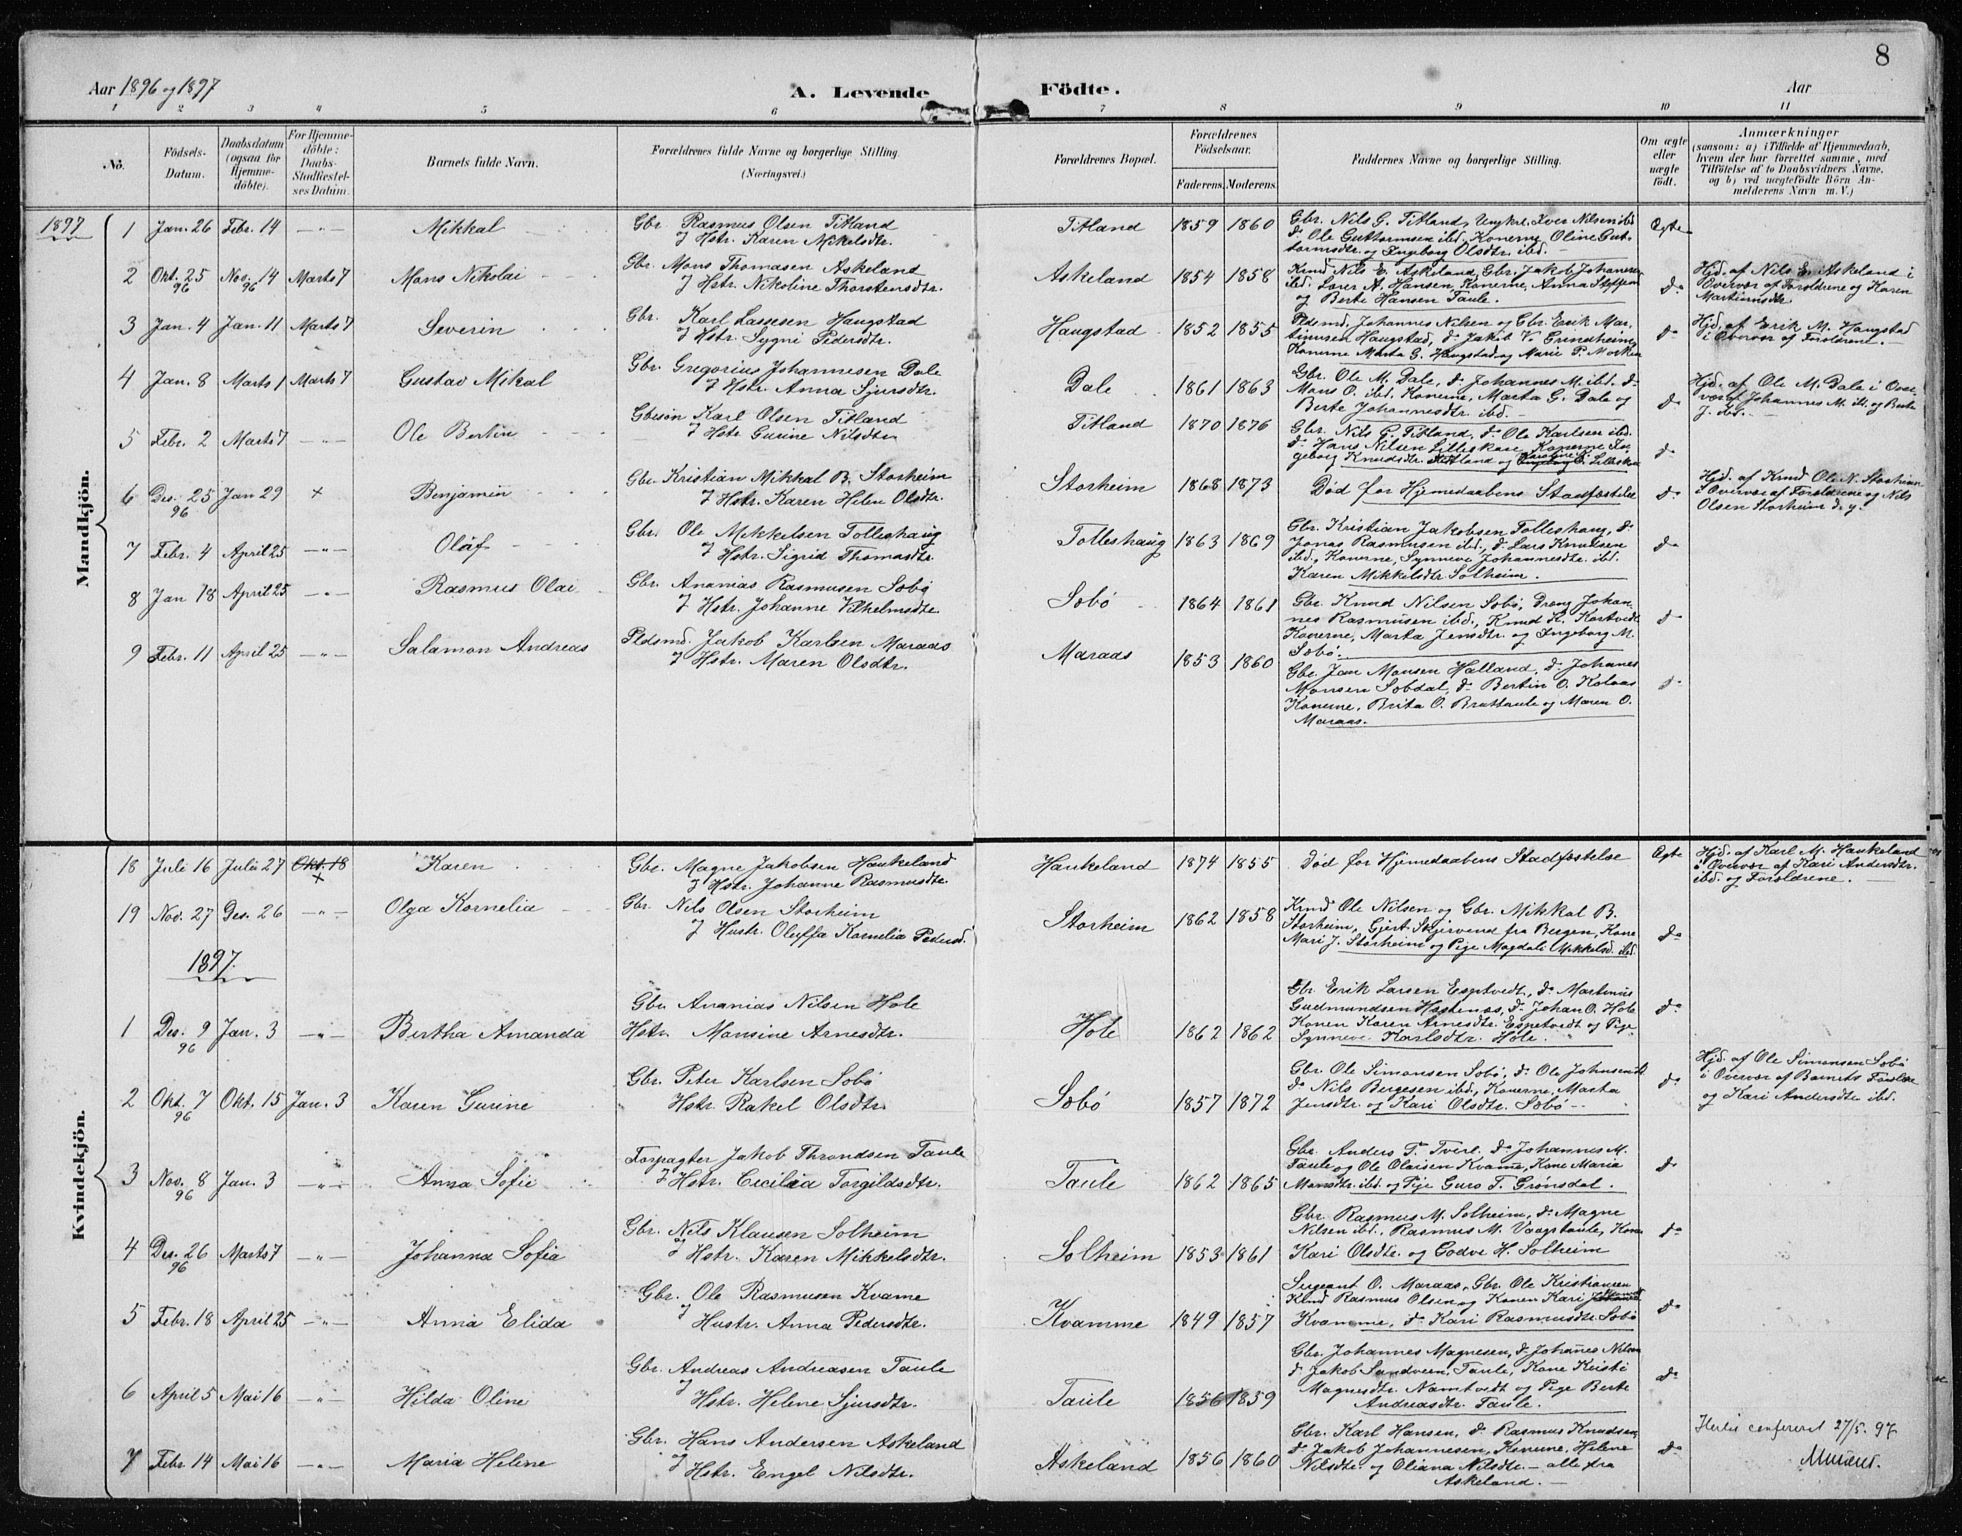 8
Aar 1896 og 1897
A. Levende Födte.
Aar
1 2 3 4 5 6 7 8 9 10 11
No.
Födsels-Datum.
Daabsdatum (ogsaa for Hjemmedöbte).
For Hjemmedöbte: Daabs-Stadfæstelses Datum.
Barnets fulde Navn.
Forældrenes fulde Navne og borgerlige Stilling. (Næringsvei.)
Forældrenes Bopæl.
Forældrenes Födselsaar.
Faderens. Moderens.
Faddernes Navne og borgerlige Stilling.
Om ægte eller uægte födt.
Anmærkninger
(saasom: a) i Tilfælde af Hjemmedaab, hvem der har forrettet samme, med Tilföielse af to Daabsvidners Navne, og b) ved uægtefödte Börn Anmelderens Navn m. V.)
Mandkjön.
1897
1 Jan. 26 Febr. 14 -"- Mikkal
Gbr. Rasmus Olsen Titland
& Hstr. Karen Mikelsdtr.
Titland 1859 1860
Gbr. Nils G. Titland, Ungkrl. Iver Nilsen ibd
do Ole Guttormsen ibd. Konerne Oline Gut-
tormsdtr og Ingeborg Olsdtr ibd.
Ægte
2 Okt. 25 96 Nov. 14 96 Marts 7 Mons Nikolai
Gbr. Mons Thomasen Askeland
& Hstr. Nikoline Thorstensdtr.
Askeland 1854 1858
Knud Nils E. Askeland, Gbr. Jakob Johanesen
ibd. Hansen, Konerne, Anna
og Berte Hansen Taule.
do
Hjd. af Nils E. Askeland i
Overvær af Forældrene og Karen
Martinusdtr
3 Jan. 4 Jan. 11 Marts 7 Severin
Gbr. Karl Lassesen Haugstad
& Hstr. Sygni Pedersdtr.
Haugstad 1852 1855
Pldsmd. Johannes Nilsen og Gbr. Erik Mar-
tinusen Haugstad, do Jakob V. Grindheim,
Konerne Marta G. Haugstad og Marie P. Morken
do
Hjd. af Erik M. Haugstad
i Overvær af Forældrene.
4 Jan. 8 Marts 1 Marts 7 Gustav Mikal
Gbr. Gregorius Johannesen Dale
& Hstr. Anna Sjursdtr.
Dale 1861 1863
Gbr. Ole M. Dale, do Johannes M. ibd. do
Mons O. ibd. Konerne, Marta G. Dale og
Berte Johannesdtr. ibd.
do
Hjd. af Ole M. Dale i Over-
vær af Johannes M. ib. og Berte
J. ibd.
5 Febr. 2 Marts 7 -"- Ole Bertin
Gbesøn Karl Olsen Titland
& Hstr. Gurine Nilsdtr
Titland 1870 1876
Gbr. Nils G. Titland, do Ole Karlsen ibd.
do Hans Nilsen Lilleskare, Konerne In-
geborg Knudsdtr. Titland og Lilleskare
do
6 Des. 25 96 Jan 29 + Benjamin
Gbr. Kristian Mikkal B. Storheim
& Hstr. Karen Helen Olsdtr.
Storheim 1868 1873
Død før Hjemedaabens Stadfæstelse
do
Hjd. af Knud Ole N. Storheim
i Overvær af Forældrene og Nils
Olsen Storheim d. y.
7 Febr. 4 April 25 -"- Olaf
Gbr. Ole Mikkelsen Tolleshaug
& Hstr. Sigrid Thomasdtr.
Tolleshaug 1863 1869
Gbr. Kristian Jakobsen Tolleshaug, do
Jonas Rasmusen ibd, do Lars Knudsen
ibd, Konerne, Synneve Johannesdtr. ibd.
Karen Mikkelsdtr Solheim.
do
8 Jan 18 April 25 -"- Rasmus Olai
Gbr. Ananias Rasmusen Søbø
& Hstr. Johanne Vilhelmsdtr
Søbø 1864 1861
Gbr. Knud Nilsen Søbø, Dreng Johan-
nes Rasmusen ibd., Knud K. Kartvedt
Konerne, Marta Jensdtr. og Ingeborg M.
Søbø.
do
9 Febr. 11 April 25 -"- Salamon Andreas
Pldsmd. Jakob Karlsen Maraas
& Hstr. Maren Olsdtr.
Maraas 1853 1860
Gbr. Jan Monsen Halland, do Johanes
Monsen Søbdal, do Bertin O. Kolaas
Konerne, Brita O. Brattaule og Maren O.
Maraas.
do
Kvindekjön.
18 Juli 16 Julii 27 Okt. 18 + Karen
Gbr. Magne Jakobsen Haukeland
& Hstr. Johanne Rasmusdtr.
Haukeland 1874 1855
Død før Hjemedaabens Stadfæstelse
Ægte
Hjd. af Karl M. Haukeland
i Overvær af Kari Andersdtr.
ibd. og Forældrene.
19 Nov. 27 Des. 26 -"- Olga Kornelia
Gbr. Nils Olsen Storheim
& Hustr. Oluffa Kornelia Pedersd.
Storheim 1862 1858
Knud Ole Nilsen og Gbr. Mikkal B.
Storheim, Gjert Skjervend fra Bergen, Kone
Mari J. Storheim og Pige Magdali Mikkelsd. ibd.
do
1897.
1 Des. 9 96 Jan. 3 -"- Bertha Amanda
Gbr. Ananias Nilsen Hole
Hstr. Monsine Arnesdtr.
Hole 1862 1862
Gbr Erik Larsen Espetvedt, do Martinus
Gudmundsen Høstenes, do Johan O. Hole
Konen Karen Arnesdtr. Espetvedt og Pige
Synneve Karlsdtr. Hole.
do
2 Okt. 7 96 Okt. 15 Jan. 3 Karen Gurine
Gbr. Peter Karlsen Søbø
Hstr. Rakel Olsdtr.
Søbø 1857 1872
Gbr Ole Simonsen Søbø, do Ole Johnsen ib
do Nils Børgesen ibd, Konerne, Marta
Jensdtr. og Kari Olsdtr. Søbø
do
Hjd. af Ole Simonsen Søbø
i Overvær af Barnets Forældre
og Kari Andersdtr ibd.
3 Nov. 8 96 Jan. 3 -"- Anna Sofie
Forpagter Jakob Throndsen Taule
& Hstr. Cecilia Torgildsdtr.
Taule 1862 1865
Gbr. Anders T. Tveit. do Johannes M.
Taule og Ole Olaisen Kvamme, Kone Maria
Monsdtr. ibd. og Pige Guro T. Grønsdal.
do
4 Des. 26 96 Marts 7 -"- Johanna Sofia
Gbr. Nils Klausen Solheim
& Hstr. Karen Mikkelsdtr.
Solheim 1853 1861
Gbr. Rasmus M. Solheim, do Magne
Nilsen ibd., Rasmus M. Vaagstaule, Kone
Kari Olsdtr. og Godve H. Solheim
do
5 Febr. 18 April 25 -"- Anna Elida
Gbr. Ole Rasmusen Kvame
& Hustr. Anna Pedersdtr.
Kvamme 1849 1857
Sergeant O. Maraas, Gbr. Ole Kristiansen
Knud Rasmus Olsen og Konen Kari
Kvamme, do Kari Rasmusdtr Søbø
do
6 April 5 Mai 16 -"- Hilda Oline
Gbr. Andreas Andreasen Taule
& Hstr. Helene Sjursdtr.
Taule 1856 1859
Gbr. Johannes Magnesen, do Johanes Nilsen
do Jakob Sandven, Taule, Kone Kristi
Magnesdtr. Namtvedt og Pige Berte
Andreasdtr Taule.
do
7 Febr 14 Mai 16 -"- Maria Helene
Gbr. Hans Andersen Askeland
& Hstr. Engel Nilsdtr.
Askeland 1856 1860
Gbr. Karl Hansen, do Rasmus Knudsen,
do Jakob Johannesen, Konerne, Helene
Nilsdtr. og Oliana Nilsdtr. — alle fra
Askeland.
do
Hertil confereret 27/5. 97.